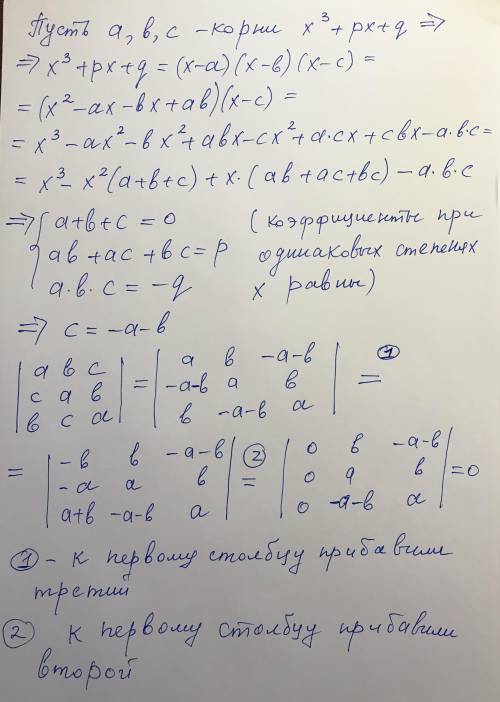 Пусть a, b, c – корни x³ + px + q ⇒
⇒ x³ + px + q = (x-a)(x-b)(x-c) =
= (x² - ax - bx + ab)(x-c) =
= x³ - ax² - bx² + abx - cx² + a·cx + cbx - a·b·c =
= x³ - x²(a+b+c) + x·(ab+ac+bc) - a·b·c
⇒ { a+b+c = 0 (коэффициенты при
ab+ac+bc = p одинаковых степенях
a·b·c = -q x равны)
⇒ c = -a-b
| a b c | = | a b -a-b | ① =
| c a b | = | -a-b a b | =
| b c a | = | b -a-b a | =
= | -b b -a-b | ② = | 0 b -a-b | = 0
| -a a b | = | 0 a b | = 0
| a+b -a-b a | = | 0 -a-b a | = 0
① – к первому столбцу прибавили
третий
② к первому столбцу прибавили
второй